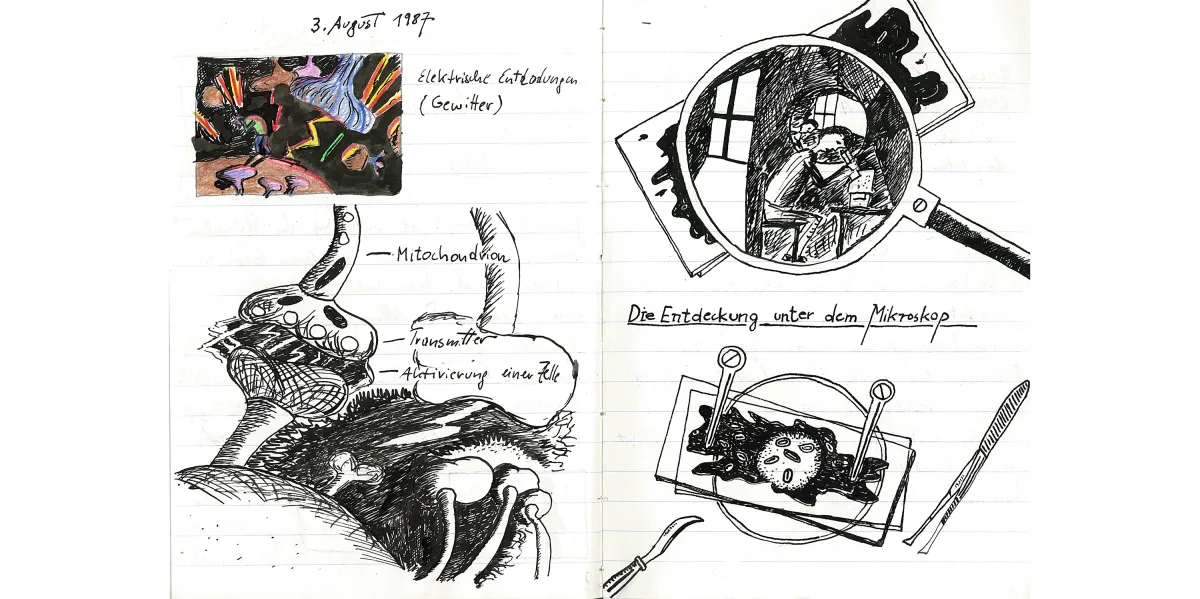 3. August 1987
Elektrische Entladungen
(Gewitter)
Mitochondrion
Transmitter
Aktivierung einer Zelle
Die Entdeckung unter dem Mikroskop